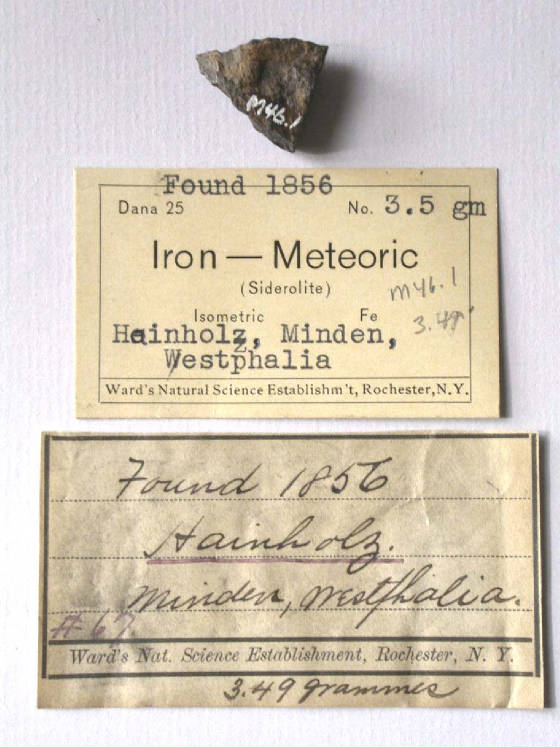 M46.1
Found 1856
Dana 25 No. 3.5 gm
Iron — Meteoric
(Siderolite)
M46.1
Isometric Fe
3.49
Hainholz, Minden,
Westphalia
Ward's Natural Science Establishm't, Rochester, N.Y.
Found 1856
Hainholz.
Minden, Westphalia.
#67
Ward's Nat. Science Establishment, Rochester, N. Y.
3.49 grammes